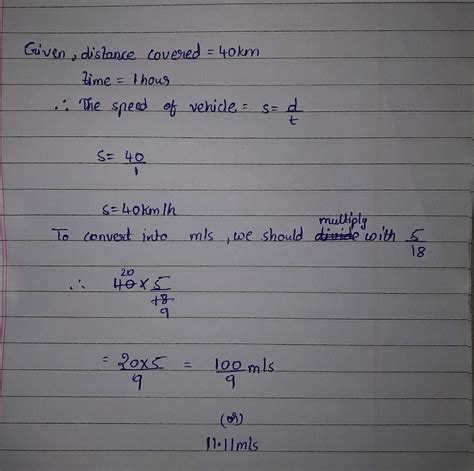 Given, distance covered = 40km
time = 1 hour
∴ The speed of vehicle = s = d/t
s = 40/1
s = 40km/h
To convert into m/s, we should divide multiply with 5/18
∴ 40 20 × 5/18 9
= 20×5/9 = 100/9 m/s
(or)
11.11m/s